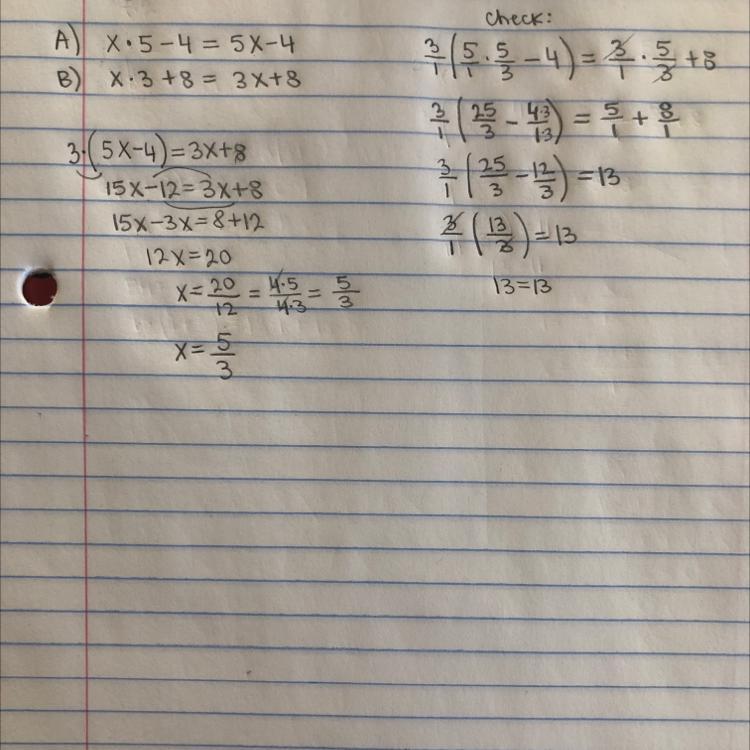 A) x·5-4 = 5x-4
B) x·3+8 = 3x+8
3·(5x-4)=3x+8
15x-12=3x+8
15x-3x=8+12
12x=20
x=20/12 = 4·5/4·3 = 5/3
x=5/3
check:
3/1(5/1·5/3-4)=3/1·5/3+8
3/1(25/3-4·3/1·3)=5/1+8/1
3/1(25/3-12/3)=13
3/1(13/3)=13
13=13